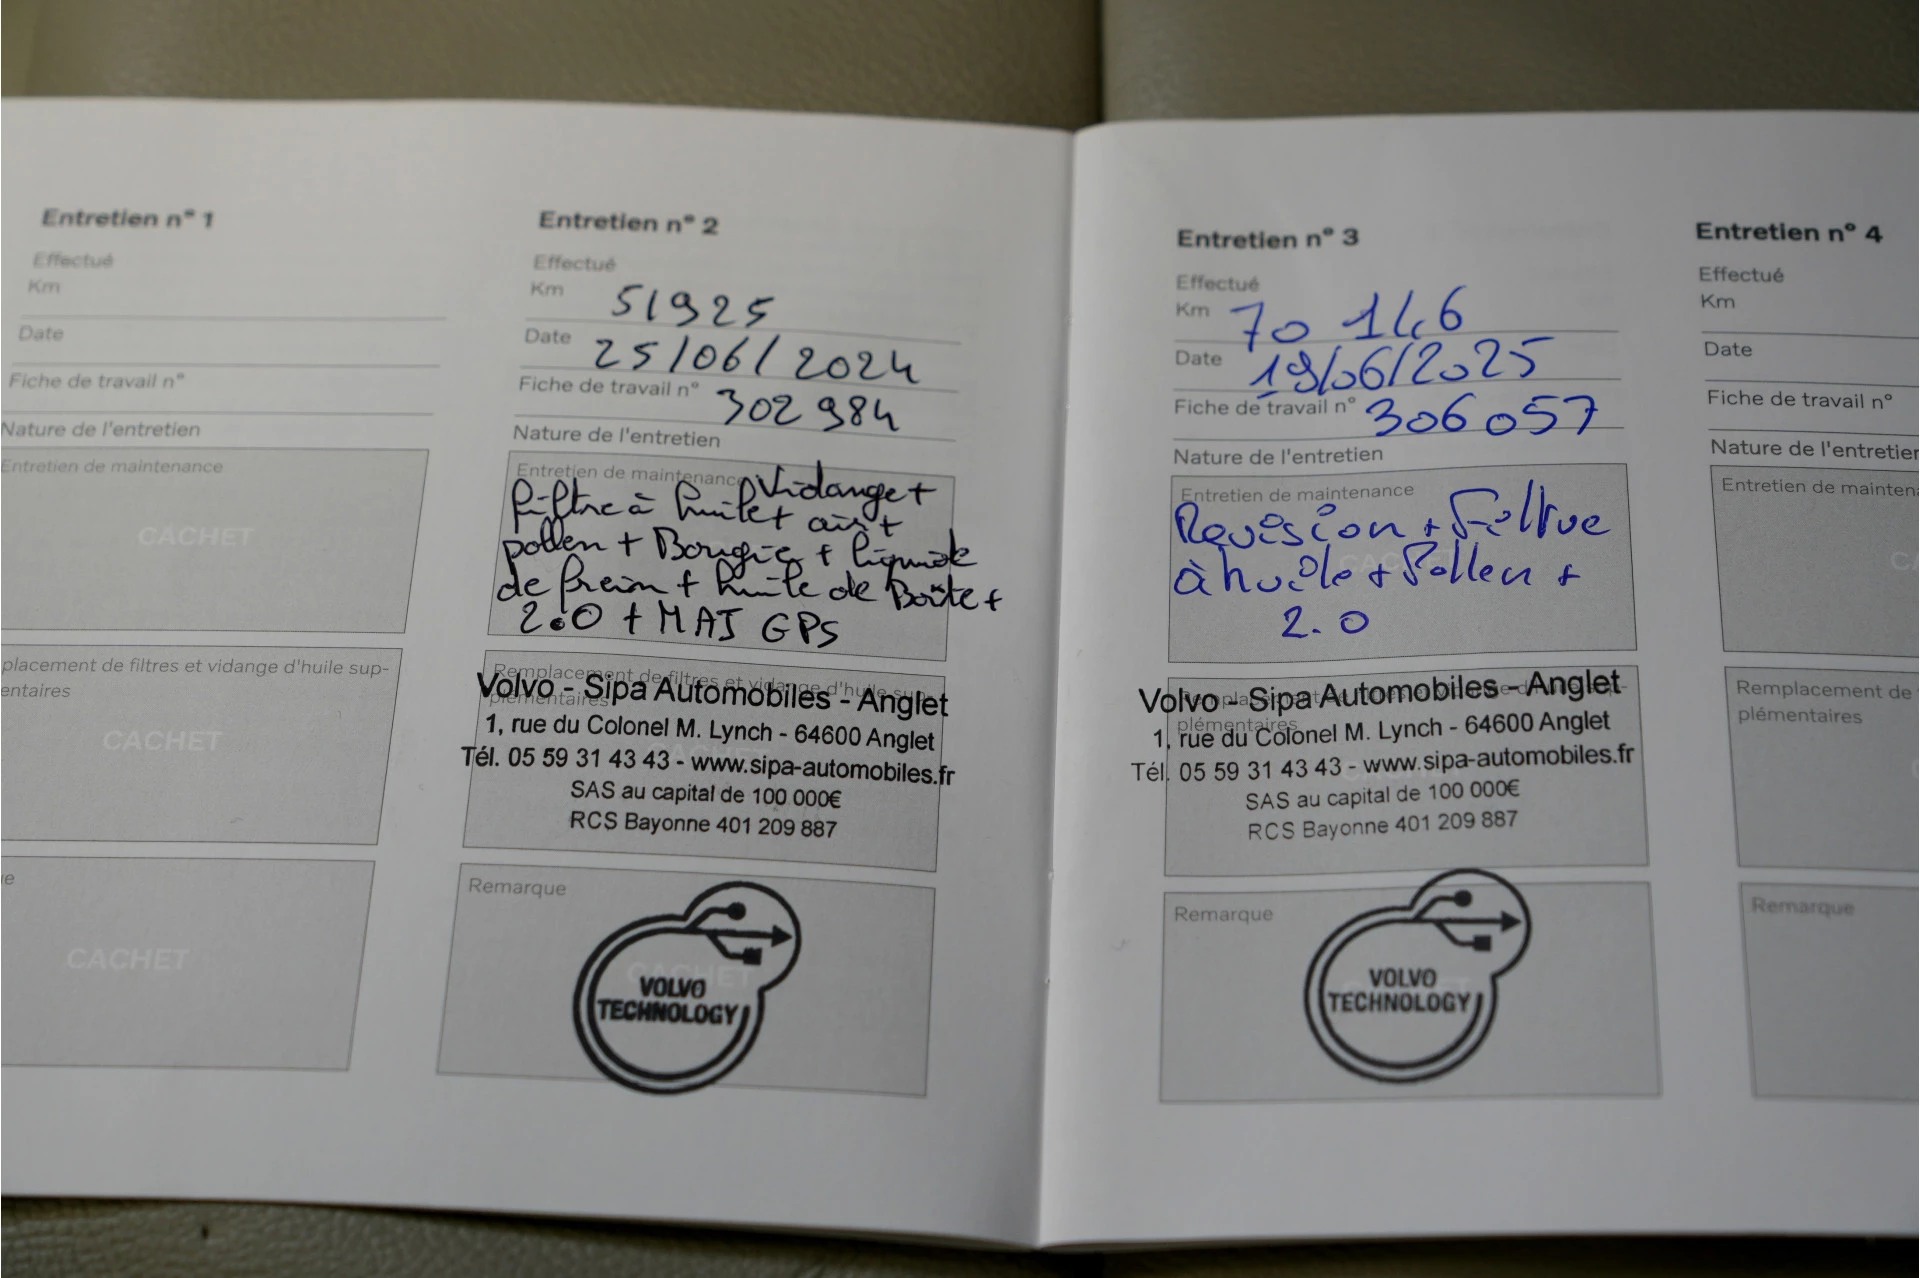 Entretien n° 1
Effectué
Km
Date
Fiche de travail n°
Nature de l'entretien
Entretien de maintenance
CACHET
placement de filtres et vidange d'huile sup-
entaires
CACHET
CACHET
Entretien n° 2
Effectué
Km 51925
Date 25/06/2024
Fiche de travail n° 302984
Nature de l'entretien
Entretien de maintenance
Vidange +
filtre à huile + air +
pollen + Bougie + liquide
de frein + huile de Boîte +
2.0 + MAJ GPS
Remplacement de filtres et vidange d'huile sup-
plémentaires
Volvo - Sipa Automobiles - Anglet
1, rue du Colonel M. Lynch - 64600 Anglet
Tél. 05 59 31 43 43 - www.sipa-automobiles.fr
SAS au capital de 100 000€
RCS Bayonne 401 209 887
Remarque
CACHET
VOLVO
TECHNOLOGY
Entretien n° 3
Effectué
Km 70 146
Date 19/06/2025
Fiche de travail n° 306057
Nature de l'entretien
Entretien de maintenance
Revision + Filtre
à huile + Pollen +
2.0
plémentaires
Volvo - Sipa Automobiles - Anglet
1, rue du Colonel M. Lynch - 64600 Anglet
Tél. 05 59 31 43 43 - www.sipa-automobiles.fr
SAS au capital de 100 000€
RCS Bayonne 401 209 887
Remarque
VOLVO
TECHNOLOGY
Entretien n° 4
Effectué
Km
Date
Fiche de travail n°
Nature de l'entretien
Entretien de mainten
Remplacement de
plémentaires
Remarque